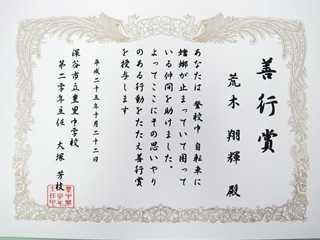 善行賞
荒木 翔輝 殿
あなたは 登校中 自転車に
蟷螂が止まっていて困って
いる仲間を助けました。
よってここにその思いやり
のある行動をたたえ善行賞
を授与します
平成二十五年十月二十二日
深谷市立豊里中学校
第二学年主任 大塚 芳枝